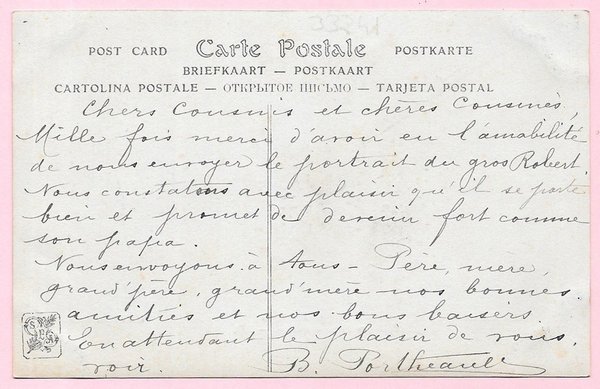 33241
POST CARD Carte Postale POSTKARTE
BRIEFKAART — POSTKAART
CARTOLINA POSTALE — ОТКРЫТОЕ ПИСЬМО — TARJETA POSTAL
Chers Cousins et chères Cousines,
Mille fois merci d'avoir eu l'amabilité
de nous envoyer le portrait du gros Robert.
Nous constatons avec plaisir qu'il se porte
bien et promet de devenir fort comme
son papa.
Nous envoyons à tous - Père, mère,
grand'père, grand'mère nos bonnes
amitiés et nos bons baisers.
En attendant le plaisir de vous
voir. B. Portheault